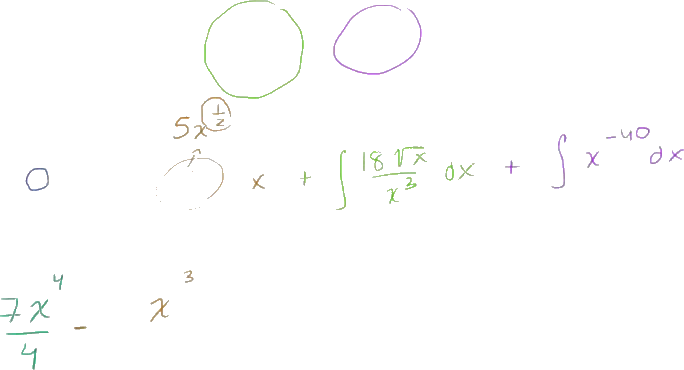 5x^{\frac{1}{2}}
0 x + \int \frac{18\sqrt{x}}{x^3} dx + \int x^{-40} dx
\frac{7x^4}{4} - x^3